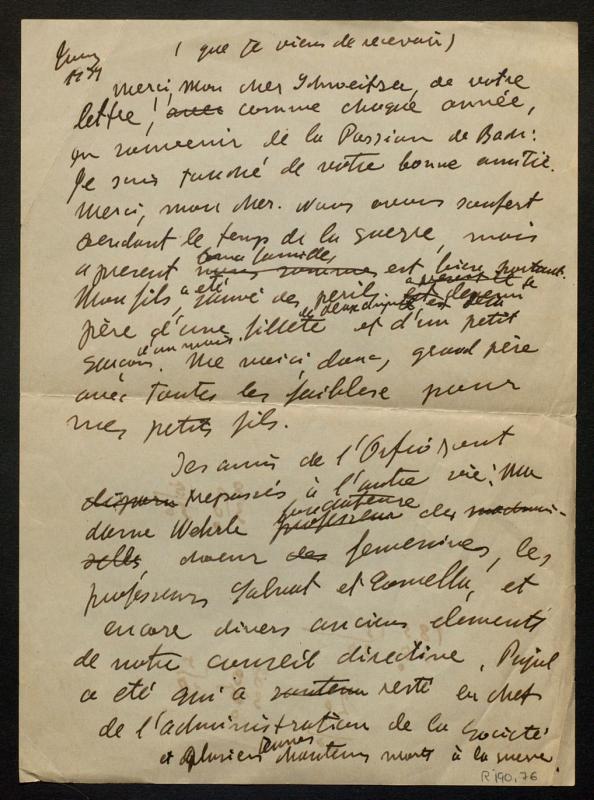 ( que je viens de recevoir)
Merci, mon cher Schweitzer, de votre
lettre, avec comme chaque année,
en souvenir de la Passion de Bach.
Je suis touché de votre bonne amitié.
Merci, mon cher. Nous avons soufert
pendant le temps de la guerre, mais
a present nous sommes est bien portant.
ma famille
Mon fils a eté sauvé des perils
père d'une fillete et d'un petit
de deux ans
garçon. Me voici donc, grand père
d'un mois
avec toutes les faiblese pour
mes petits fils.
Les amis de l'Orfeó sont
disparu trepassés à l'autre vie: Ma
dame Wehrle professeur des madamoi-
selles, choeur des femenines, les
professeurs Salvat et Comella, et
encore divers anciens elements
de notre conseil directive. Pujol
a eté qui a resté en chef
de l'administration de la Societé
et plusieurs jeunes chanteurs morts à la guerre.
R 190,76